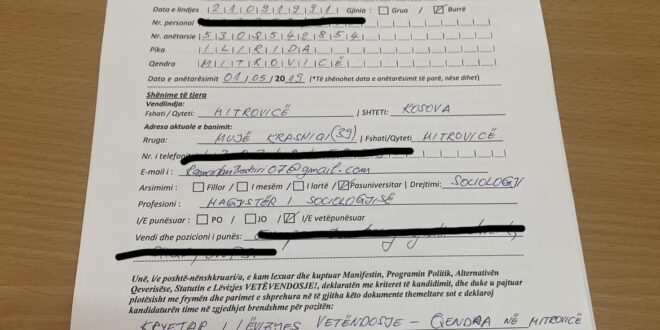 Data e lindjes |2|1|0|9|1|9|9|1| Gjinia: ☐ Grua / ☑ Burrë
Nr. personal
Nr. anëtarsie |5|3|0|8|5|4|2|8|5|4|
Pika |I|L|I|R|I|D|A|
Qendra |M|I|T|R|O|V|I|C|Ë|
Data e anëtarësimit 01/05/2019 (*Të shënohet data e anëtarësimit të parë, nëse dihet)
Shënime të tjera
Vendlindja:
Fshati / Qyteti: MITROVICË | SHTETI: KOSOVA
Adresa aktuale e banimit:
Rruga: MUJË KRASNIQI (39) | Fshati/Qyteti MITROVICË
Nr. i telefonit
E-mail i: @gmail.com
Arsimimi : ☐ Fillor / ☐ I mesëm / ☐ I lartë / ☑ Pasuniversitar | Drejtimi: SOCIOLOGJI
Profesioni : MAGJISTËR I SOCIOLOGJISË
I/E punësuar: ☐ PO / ☐ JO / ☑ I/E vetëpunësuar
Vendi dhe pozicioni i punës:
Unë, i/e poshtë-nënshkruari/a, e kam lexuar dhe kuptuar Manifestin, Programin Politik, Alternativën
Qeverisëse, Statutin e Lëvizjes VETËVENDOSJE!, deklaratën me kriteret të kandidimit, dhe duke u pajtuar
plotësisht me frymën dhe parimet e shprehura në të gjitha këto dokumente themeltare sot e deklaroj
kandidaturën time në zgjedhjet brendshme për pozitën:
KRYETAR I LËVIZJES VETËNDOSJE - QENDRA NË MITROVICË